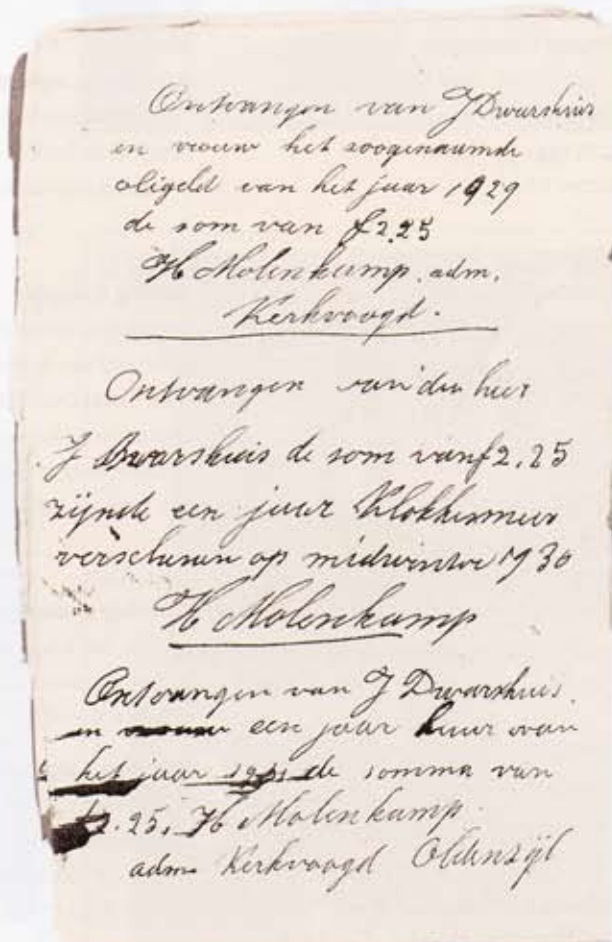 Ontvangen van J Dwarshuis
en vrouw het zoogenaamde
oligeld van het jaar 1929
de som van f2.25
H Molenkamp. adm.
Kerkvoogd.
Ontvangen van den heer
J Dwarshuis de som van f2.25
zijnde een jaar
verschenen op midwinter 1930
H Molenkamp
Ontvangen van J Dwarshuis.
en vrouw een jaar huur van
het jaar 1931 de somma van
f2.25. H Molenkamp.
adm Kerkvoogd Oldenzijl